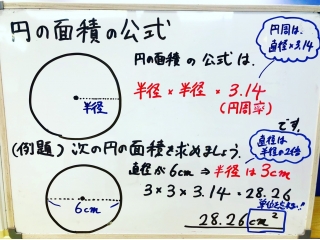 円の面積の公式
円周は、
直径×3.14
円の面積の公式は、
半径
半径×半径×3.14
(円周率)
です。
(例題)次の円の面積を求めましょう。
直径は
半径の2倍
直径が6cm→半径は3cm
6cm
3×3×3.14=28.26
単位を忘れずに!!
28.26cm²